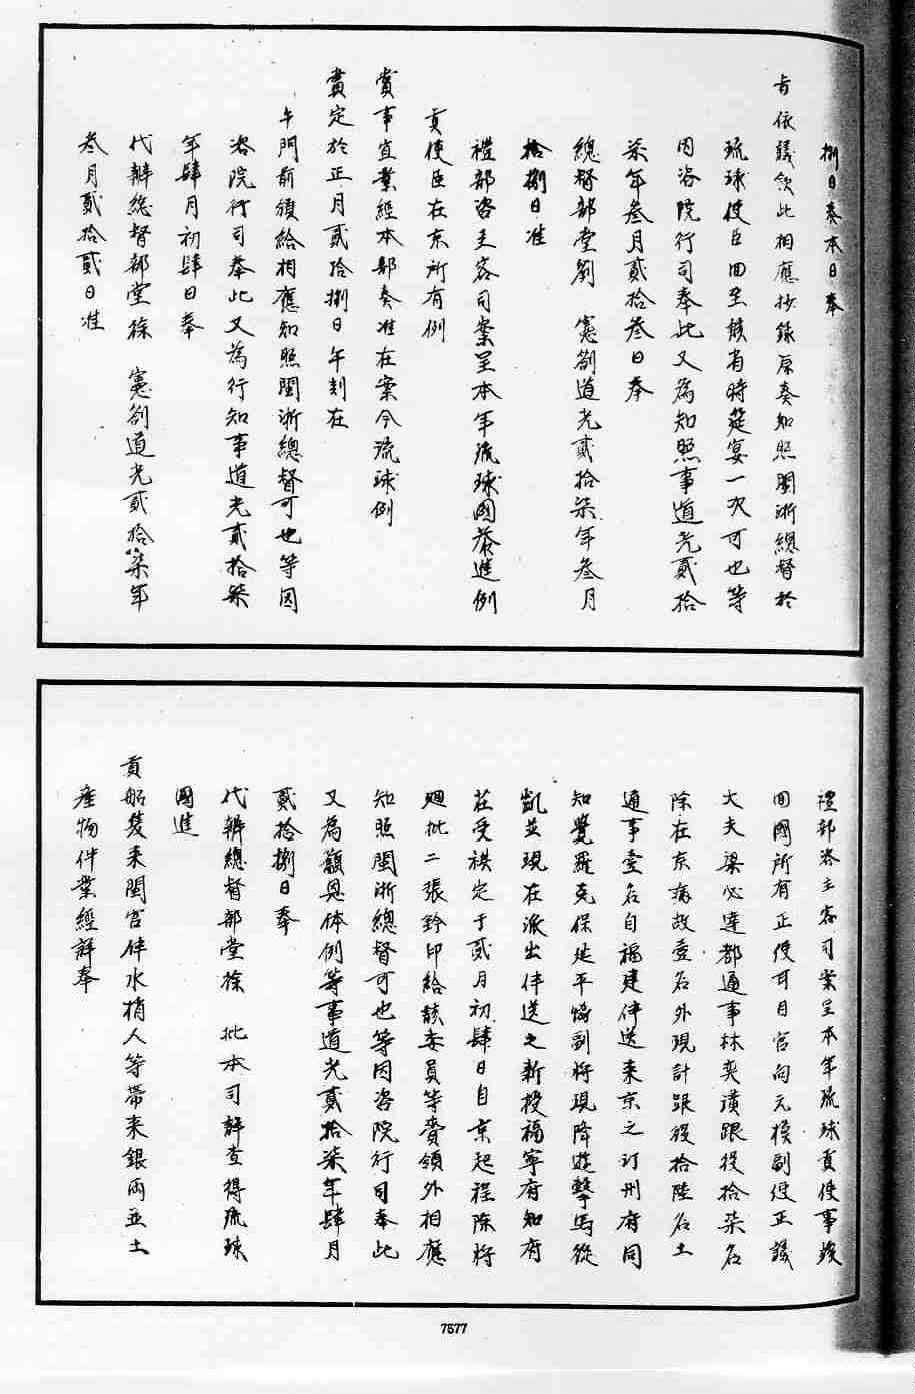 捌日奏本日奉
旨依議欽此相應抄錄原奏知照閩浙總督於
琉球使臣回至該省時筵宴一次可也等
因咨院行司奉此又為知照事道光貳拾
柒年叁月貳拾叁日奉
總督部堂劉 憲劄道光貳拾柒年叁月
拾捌日准
禮部咨主客司案呈本年琉球國恭進例
貢使臣在京所有例
賞事宜業經本部奏准在案今琉球例
賞定於正月貳拾捌日午刻在
午門前頒給相應知照閩浙總督可也等因
咨院行司奉此又為行知事道光貳拾柒
年肆月初肆日奉
代辦總督部堂徐 憲劄道光貳拾柒年
叁月貳拾貳日准
禮部咨主客司案呈本年琉球貢使事竣
回國所有正使耳目官向元模副使正議
大夫梁必達都通事林奕潢跟役拾柒名
除在京病故壹名外現計跟役拾陸名土
通事壹名自福建伴送來京之汀州府同
知覺羅克保延平協副將現降遊擊馬從
凱並現在派出伴送之新授福寧府知府
莊受祺定于貳月初肆日自京起程除將
廻批二張鈐印給該委員等賫領外相應
知照閩浙總督可也等因咨院行司奉此
又為籲恩体例等事道光貳拾柒年肆月
貳拾捌日奉
代辦總督部堂徐 批本司詳查得琉球
國進
貢船隻來閩官伴水梢人等帶來銀両並土
產物件業經詳奉
7577